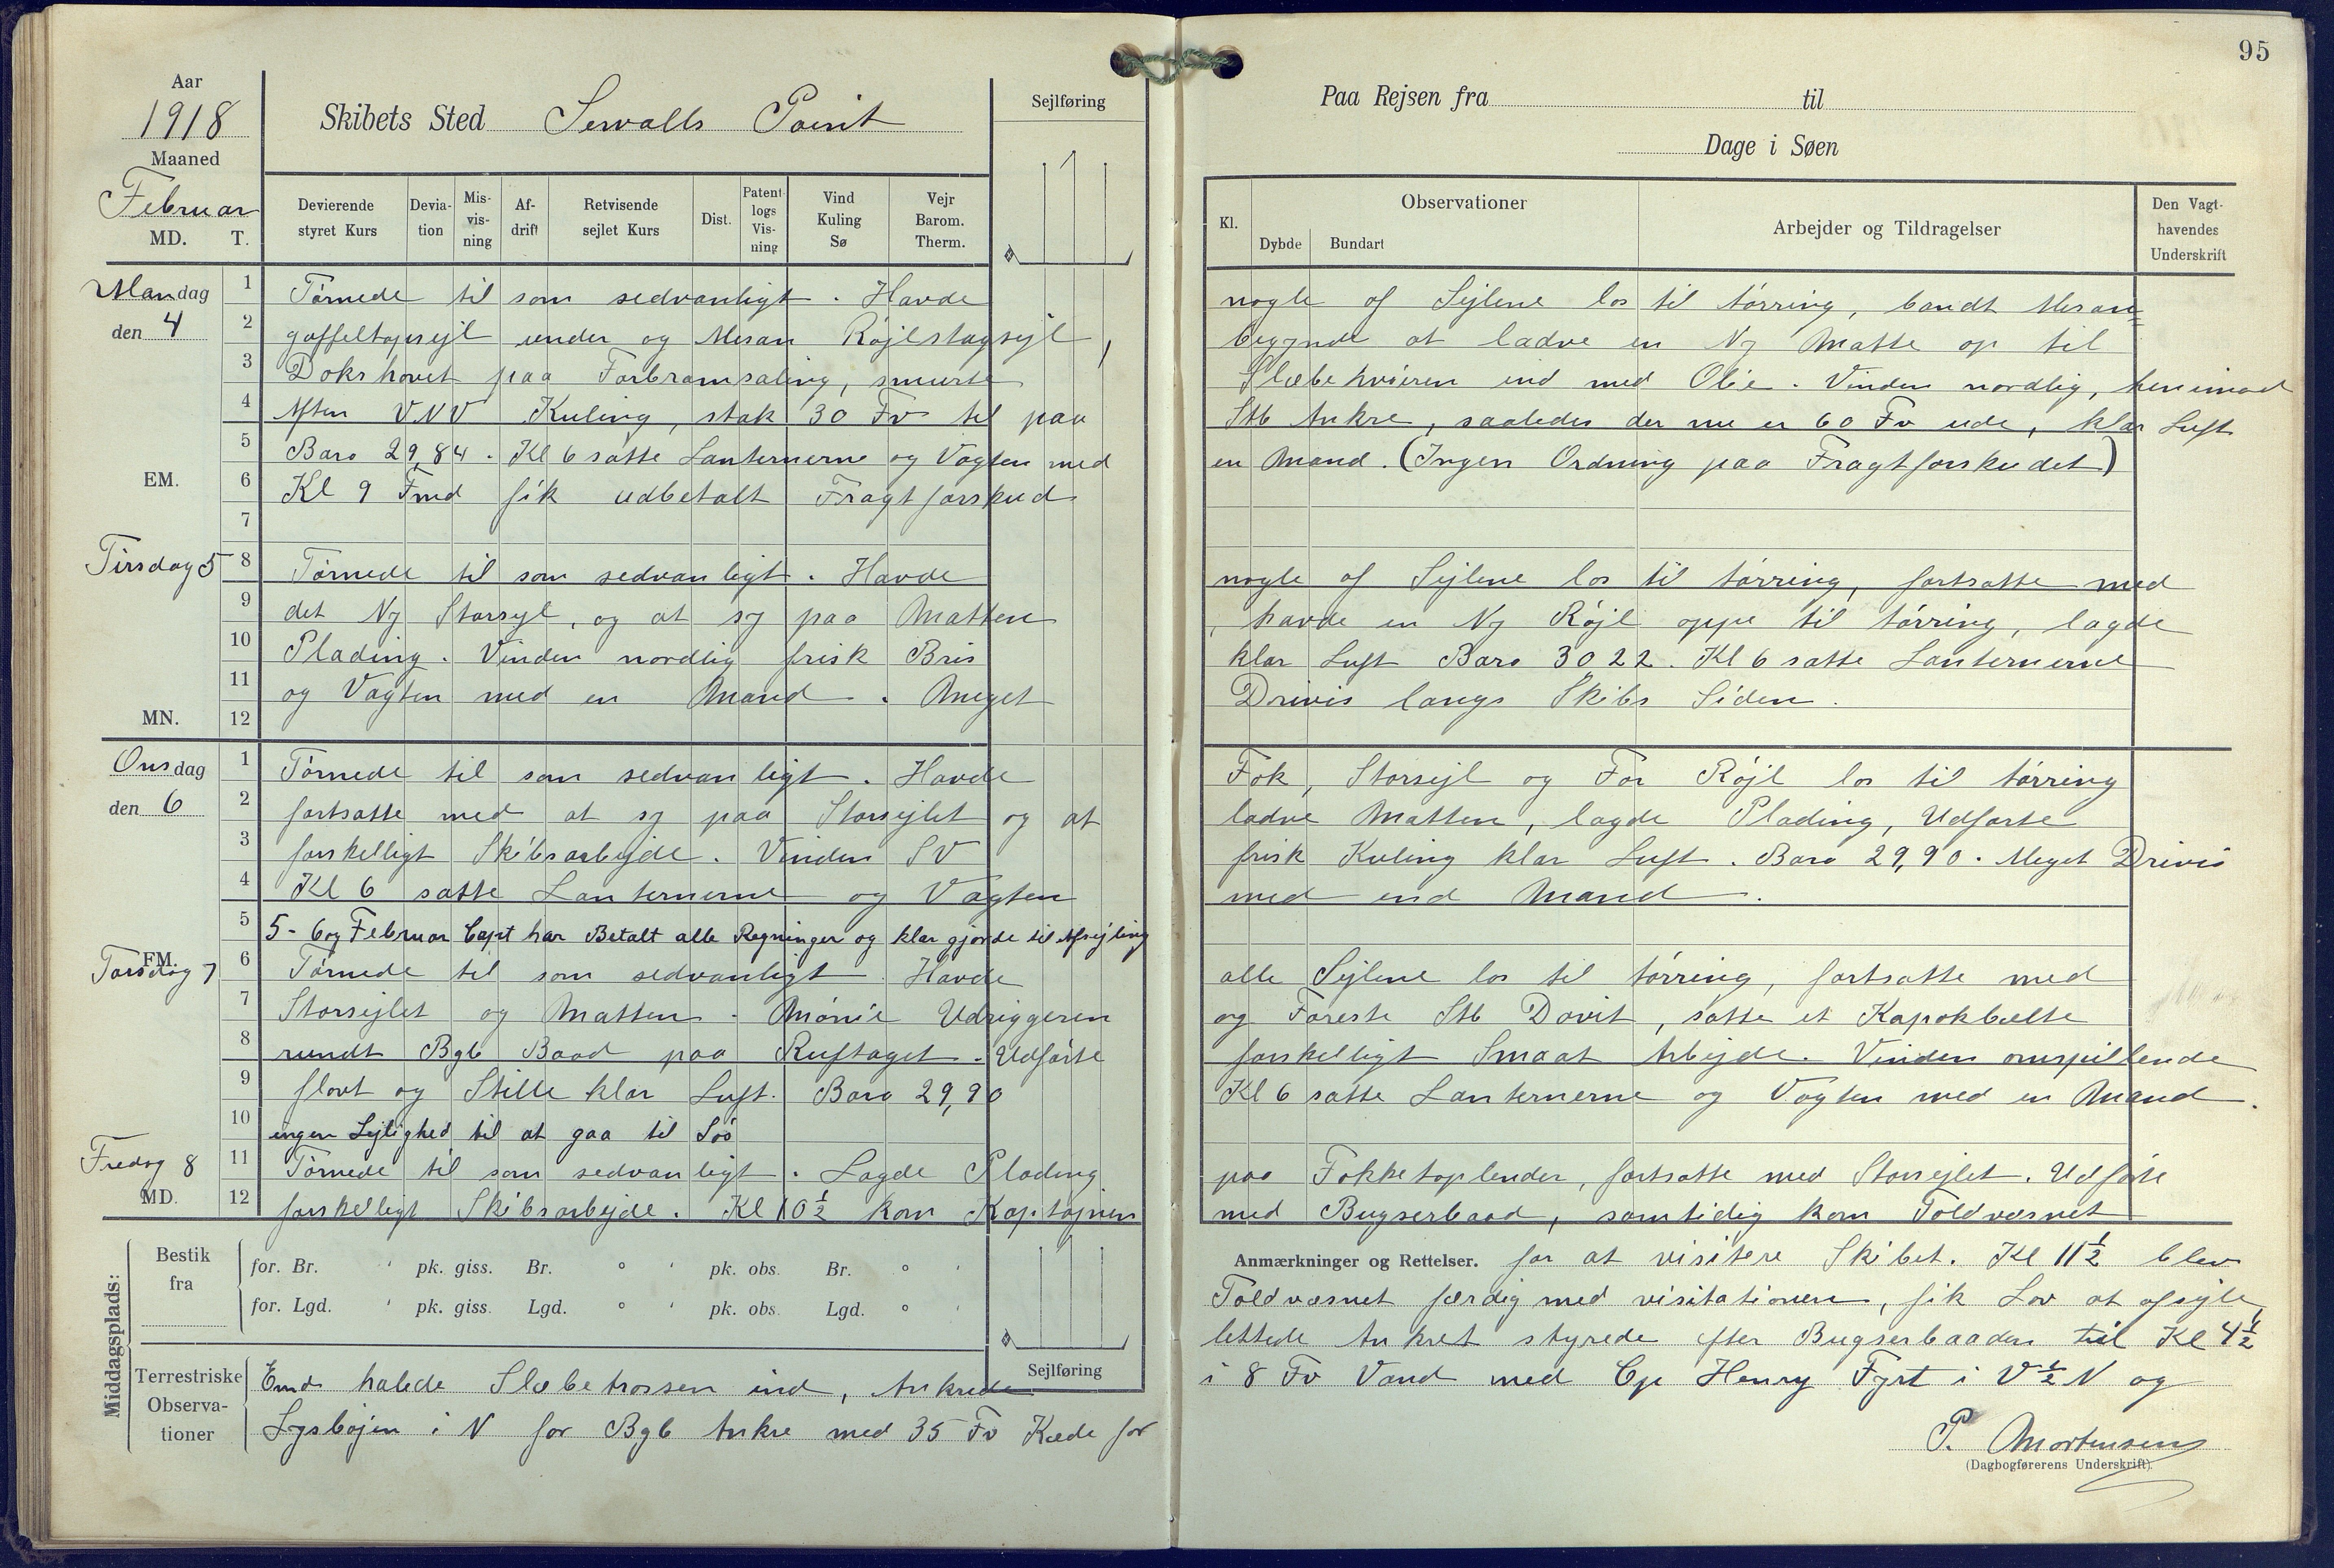 95
Aar
1918
Maaned
Februar
MD. T.
Skibets Sted Sewalls Point
Sejlføring
Paa Rejsen fra til
Dage i Søen
Devierende styret Kurs
Devia-tion
Mis-vis-ning
Af-drift
Retvisende sejlet Kurs
Dist.
Patent-logs Vis-ning
Vind Kuling Sø
Vejr Barom. Therm.
Kl.
Observationer
Dybde Bundart
Arbejder og Tildragelser
Den Vagt-havendes Underskrift
Mandag den 4
1 Tørnede til som sedvanligt. Havde nogle af Sejlene los til tørring, bandt Mesan=
2 gaffeltopsejl under og Mesan Røjlstagsejl, begynde at ladve en Ny Matte op til
3 Dokshovet paa Forbramsaling, smurte Slæbehviéren ind med Olie. Vinden nordlig, henimod
4 Aften VNV Kuling, stak 30 Fv til paa Stb Ankre, saaledes der nu er 60 Fv ude, klar Luft
5 Baro 29,84. Kl 6 satte Lanternerne og Vagten med en Mand. (Ingen Ordning paa Fragtforskudet)
EM.
6 Kl 9 Fmd fik udbetalt Fragtforskud
7
Tirsdag 5
8 Tørnede til som sedvanligt. Havde nogle af Sejlene los til tørring, fortsatte med
9 det Ny Storsejl, og at sy paa Matten, havde en Ny Røjl oppe til tørring, lagde
10 Plading. Vinden nordlig frisk Bris klar Luft Baro 3022. Kl 6 satte Lanternerne
11 og Vagten med en Mand. Meget Drivis langs Skibs Siden.
MN. 12
Onsdag den 6
1 Tørnede til som sedvanligt. Havde Fok, Storsejl og For Røjl los til tørring
2 fortsatte med at sy paa Storsejlet og at ladve Matten, lagde Plading, Udførte
3 forskelligt Skibsarbejde. Vinden SV frisk Kuling klar Luft. Baro 29,90. Meget Drivis
4 Kl 6 satte Lanternerne og Vagten med end Mand.
5 5-6 og Februar Capt har Betalt alle Regninger og klar gjorde til Afsejling
FM.
Torsdag 7
6 Tørnede til som sedvanligt. Havde alle Sejlene los til tørring, fortsatte med
7 Storsejlet og Matten. Mønie Udriggeren og Foreste Stb Davit, satte et Kapokbælte
8 rundt Bgb Baad paa Ruftaget. Udførte forskelligt Smaat Arbejde. Vinden omspillende
9 flovt og Stille klar Luft. Baro 29,90 Kl 6 satte Lanternerne og Vagten med en Mand.
10 ingen Lejlighed til at gaa til Søs
Fredag 8
11 Tørnede til som sedvanligt. Lagde Plading paa Fokketoplender, fortsatte med Storsejlet. Udførte
MD.
12 forskelligt Skibsarbejde. Kl 10½ kom Kaptajnen med Bugserbaad, samtidig kom Toldvæsnet
Anmærkninger og Rettelser. for at visitere Skibet. Kl 11½ blev
Toldvæsnet færdig med visitationen, fik Lov at afsejle,
lettede Ankret styrede efter Bugserbaaden til Kl 4½
Middagsplads:
Bestik fra
for. Br. ' pk. giss. Br. ° ' pk. obs. Br. ° '
for. Lgd. ' pk. giss. Lgd. ° ' pk. obs. Lgd. ° '
Sejlføring
Terrestriske Observa-tioner
Emd halede Slæbetrossen ind, Ankrede i 8 Fv Vand med Cp Henry Fyrt i V½N og
Lysbøjen i N for Bgb Ankre med 35 Fv Kæde for
P. Mortensen
(Dagbogførerens Underskrift).